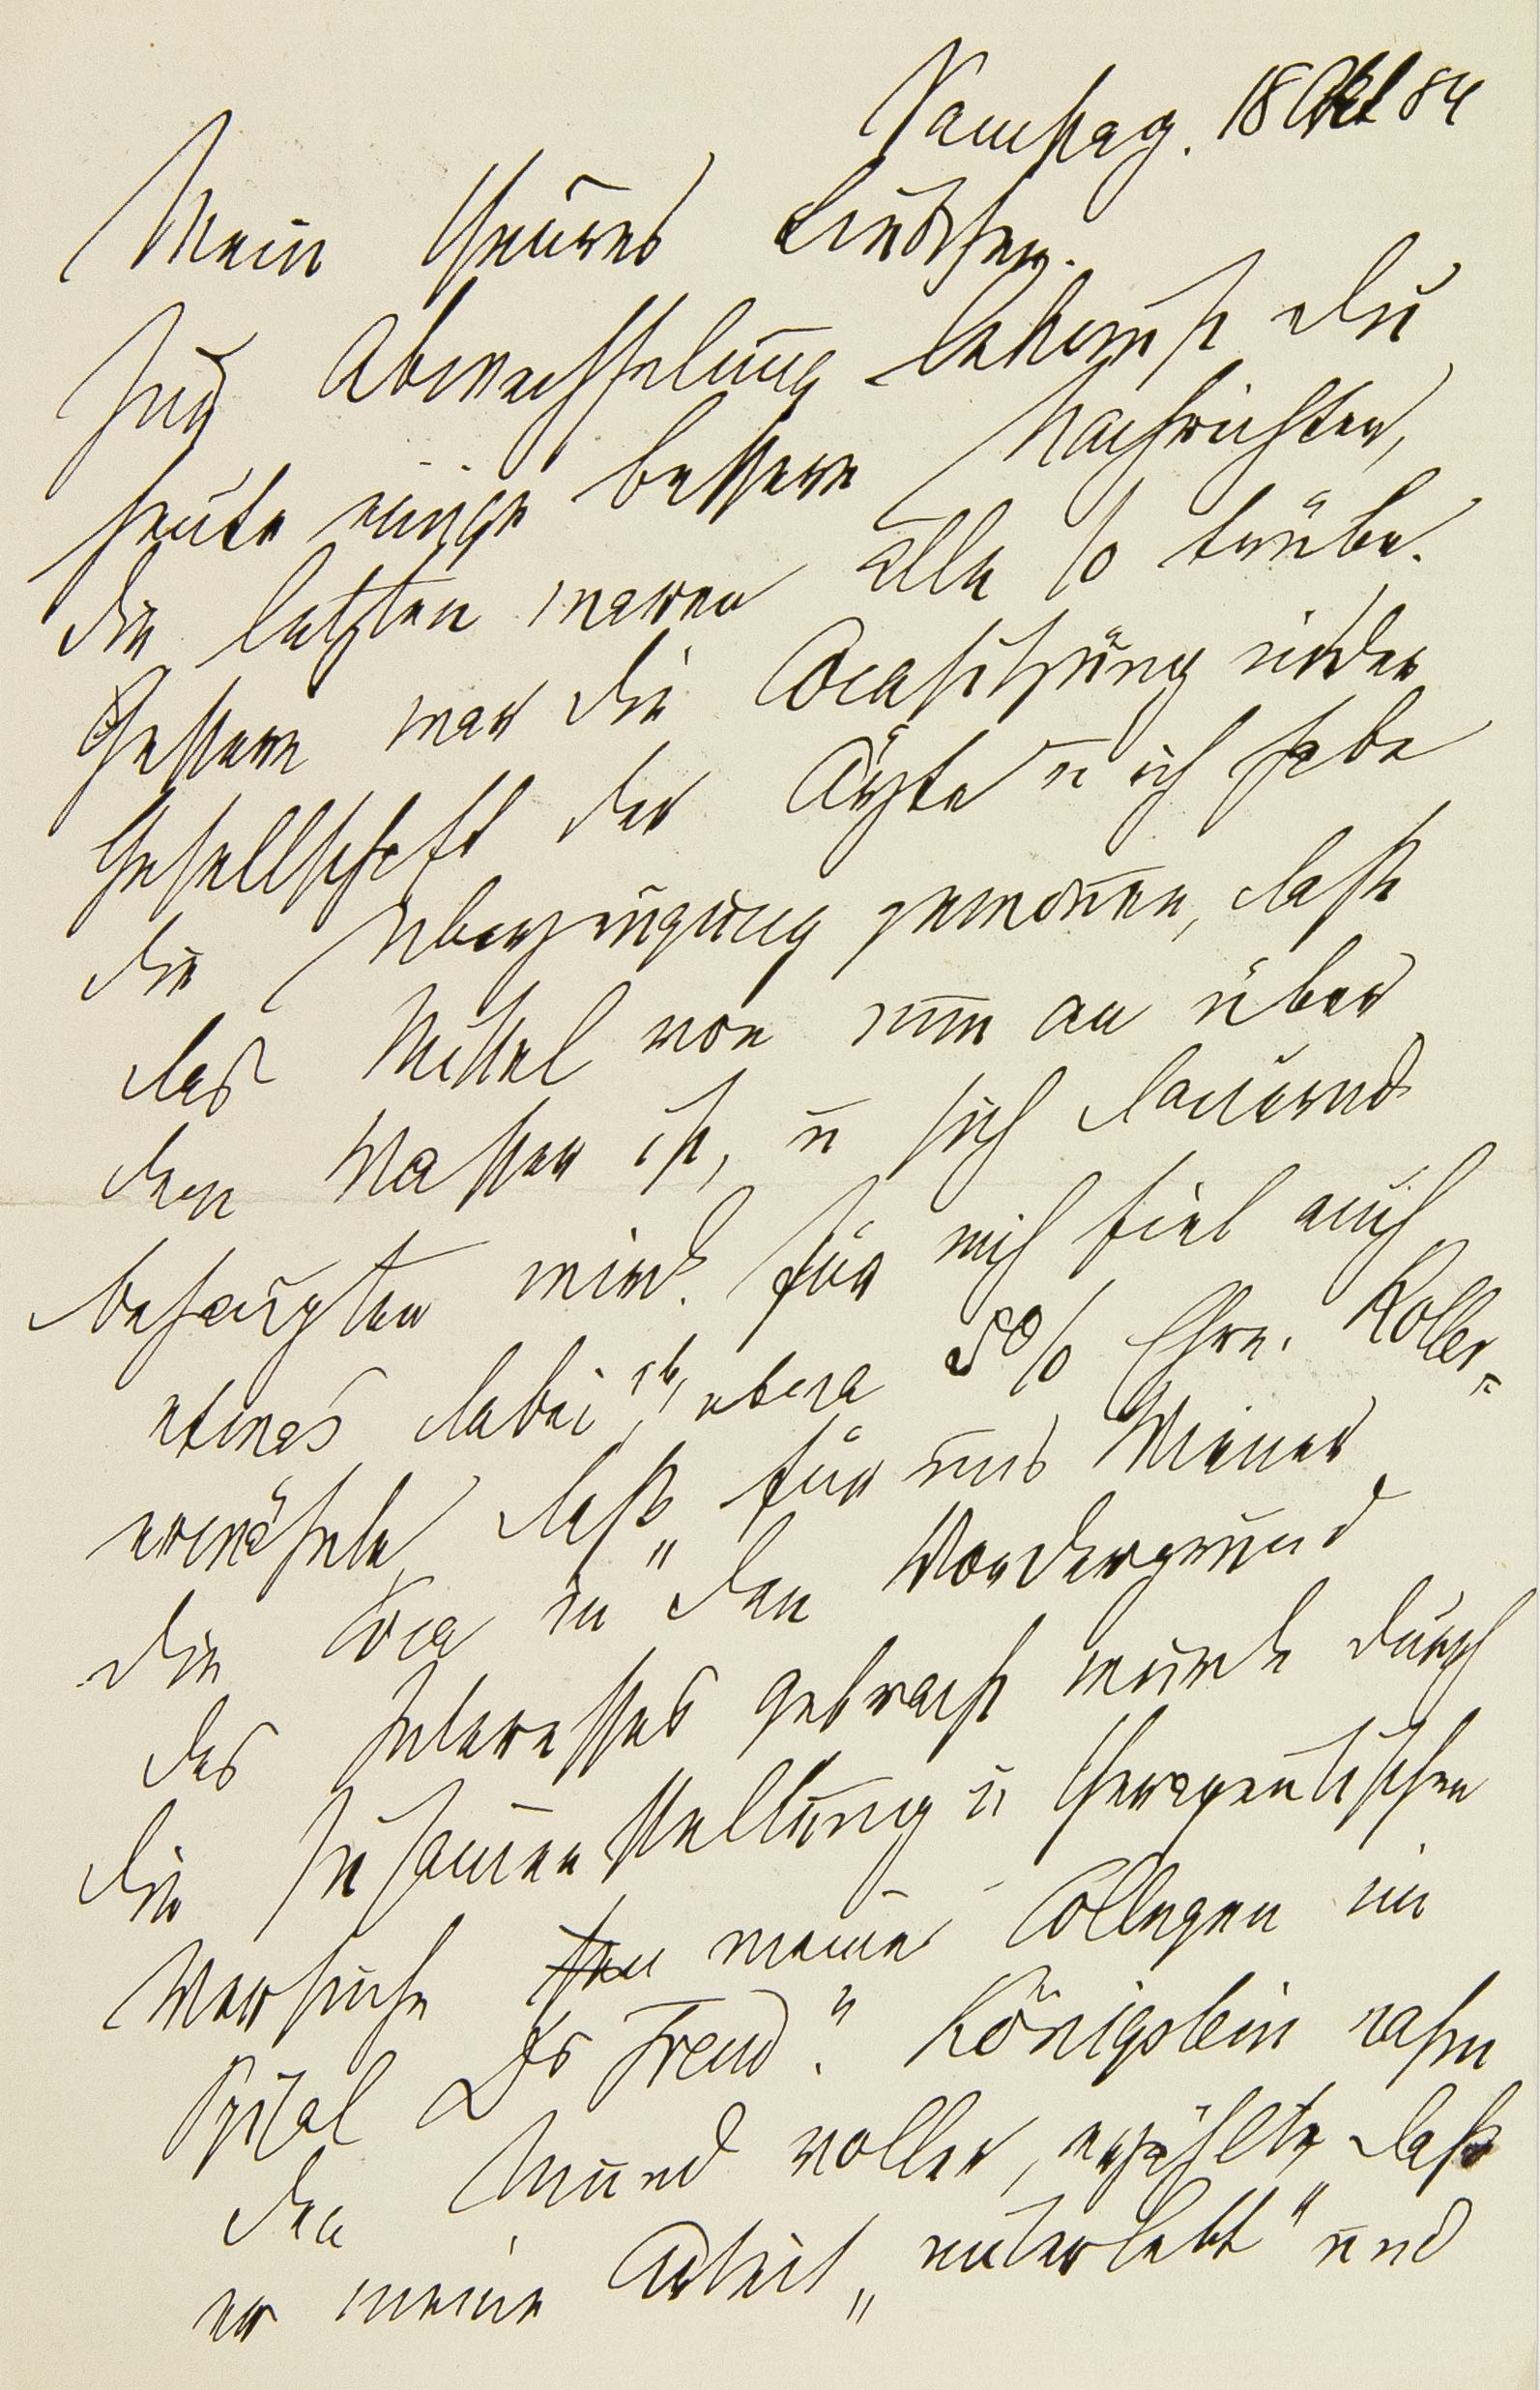 Samstag. 18 Okt 84
Mein theures Liebchen.
Zur Abwechselung bekomst du
heute einige bessere Nachrichten,
die letzten waren alle so trübe.
Gestern war die Cocasitzung in der
Gesellschaft der Ärzte u ich habe
die Überzeugung gewonen, daß
das Mittel von nun an über
dem Wasser ist, u sich dauernd
behaupten wird. Für mich fiel auch
etwas dabei ab, etwa 5% Ehre. Koller
erwähnte, daß „für uns Wiener
die Coca in den Vordergrund
des Interesses gebracht wurde durch
die Zusamenstellung u therapeutischen
Versuche meines Collegen im
Spital Dr Freud“. Königstein nahm
den Mund voller, erzählte, daß
er meine Arbeit „miterlebt“ und